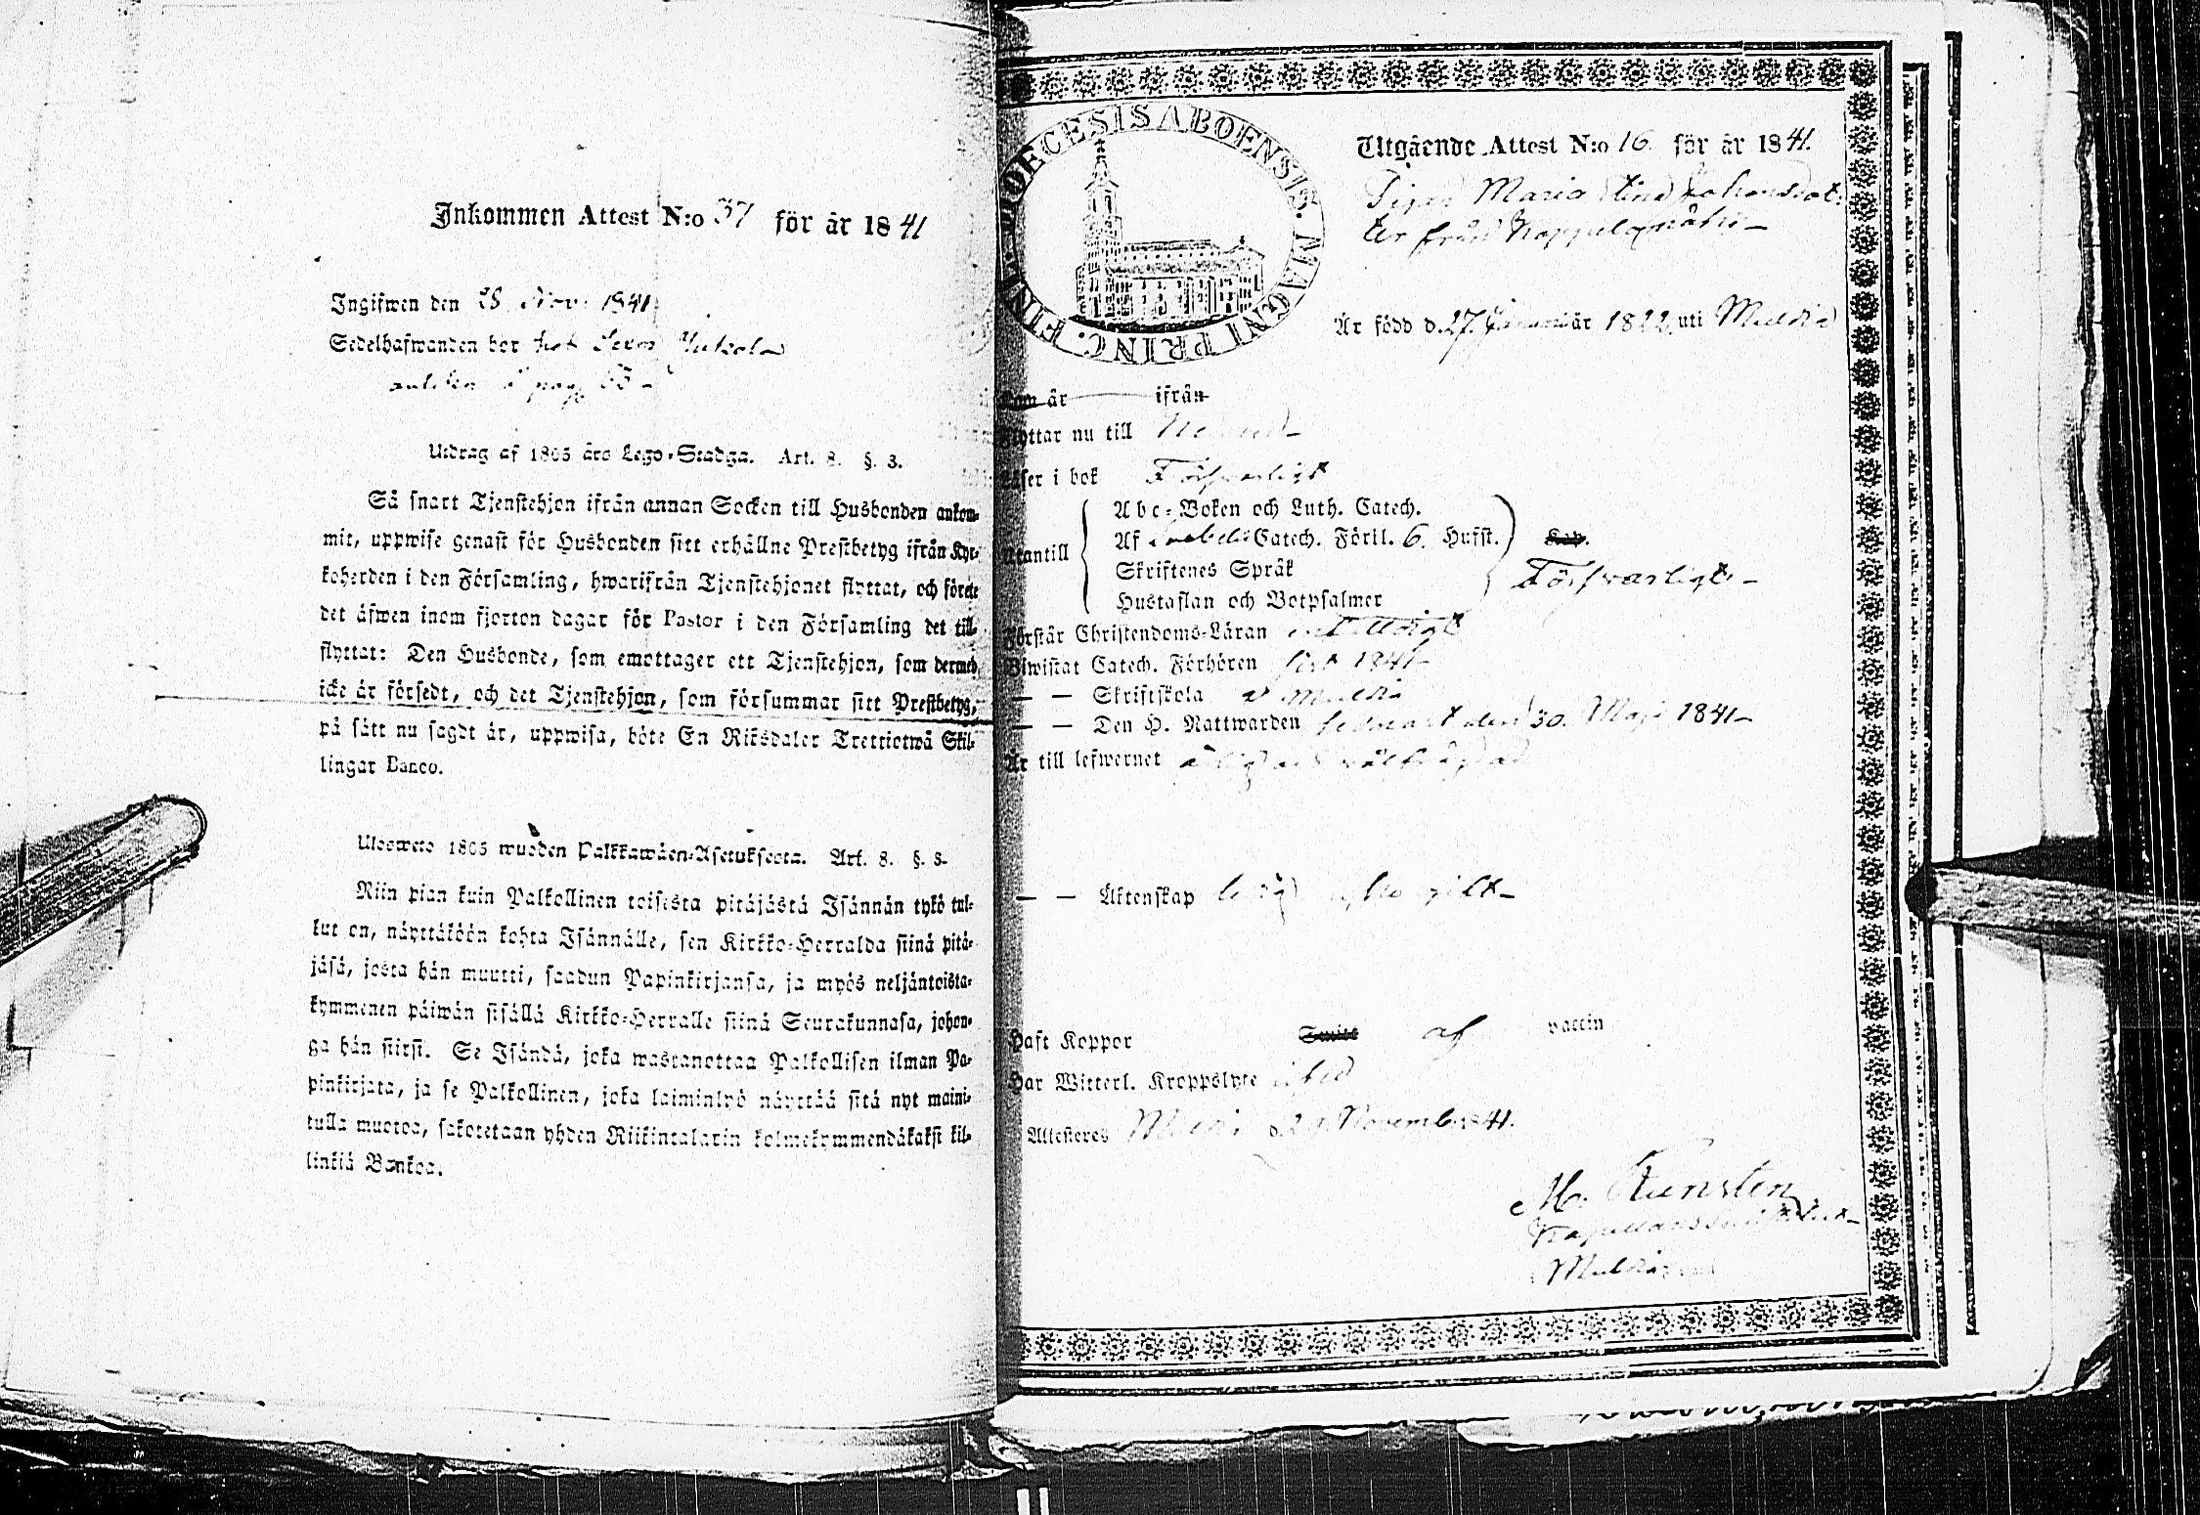 Inkommen Attest N:o 37 för år 1841
Ingifwen den 28 Nov. 1841
Sedelhafwanden bor hos
pag. 65
Utdrag af 1805 års Lego-Stadga. Art. 8. §. 3.
Så snart Tjenstehjon ifrån annan Socken till Husbonden ankom-
mit, uppwise genast för Husbonden sitt erhållne Prestbetyg ifrån Kyr-
koherden i den Församling, hwarifrån Tjenstehjonet flyttat, och förete
det äfwen inom fjorton dagar för Pastor i den Församling det till-
flyttat: Den Husbonde, som emottager ett Tjenstehjon, som dermed
icke är försedt, och det Tjenstehjon, som försummar sitt Prestbetyg,
på sätt nu sagdt är, uppwisa, böte En Riksdaler Trettiotwå Skil-
lingar Banco.
Ulosweto 1805 wuoden Palkkawäen-Asetuksesta. Art. 8. §. 3.
Niin pian kuin Palkollinen toisesta pitäjästä Isännän tykö tul-
lut on, näyttäköön kohta Isännälle, sen Kirkko-Herralda siinä pitä-
jäsä, josta hän muutti, saadun Papinkirjansa, ja myös neljäntoista-
kymmenen päiwän sisällä Kirkko-Herralle siinä Seurakunnasa, johon-
ga hän siirsi. Se Isändä, joka wastanottaa Palkollisen ilman Pa-
pinkirjata, ja se Palkollinen, joka laiminlyö näyttää sitä nyt maini-
tulla muotoa, sakotetaan yhden Riikintalarin kolmekymmendäkaksi kil-
linkiä Bankoa.
DIOECESIS ABOENSIS. MAGNI PRINC. FINL.
Utgående Attest N:o 16 för år 1841.
Pigan Maria Stina Johansdot-
ter från
Är född d. 27 Januarii år 1822, uti Mulkia
Kom år ifrån
Flyttar nu till
Läser i bok Försvarligt
Utantill
Abc-Boken och Luth. Catech.
Af Svebelii Catech. Förkl. 6. Hufst.
Skriftenes Språk
Hustaflan och Botpsalmer
Försvarligt
Förstår Christendoms-Läran
Biwistat Catech. Förhören sist 1841
— — Skriftskola i Mulkia
— — Den H. Nattwarden senast den 30. Maji 1841
Är till lefwernet
— — Äktenskap ledig
Haft Koppor af vaccin
Har Witterl. Kroppslyte
Attesteras d. November 1841.
M.
Mulkia